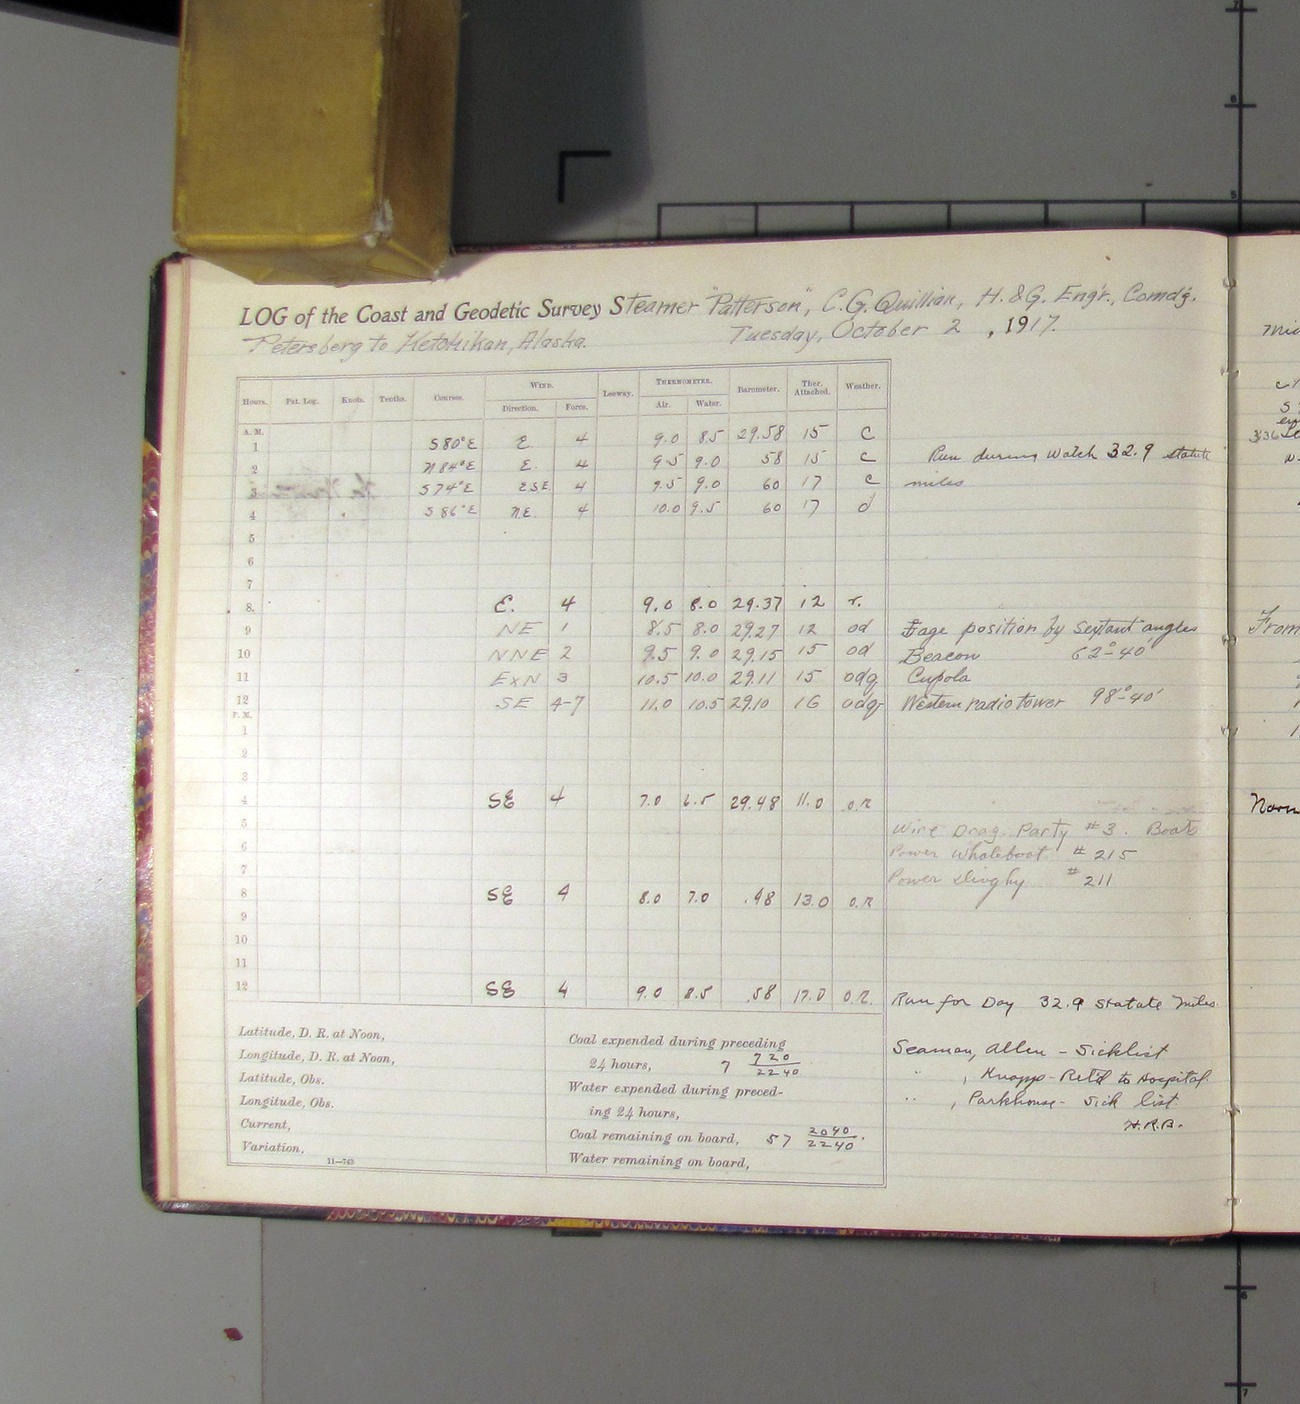 LOG of the Coast and Geodetic Survey Steamer "Patterson", C.G. Quillian, H. & G. Engr., Comdg.
Petersberg to Ketchikan, Alaska. Tuesday, October 2, 1917.
Hours. Pat. Log. Knots. Tenths. Courses. WIND. Leeway. THERMOMETER. Barometer. Ther. Attached. Weather.
Direction. Force. Air. Water.
A. M.
1 S80°E E. 4 9.0 8.5 29.58 15 c
2 N84°E E. 4 9.5 9.0 58 15 c Run during watch 32.9 statute
3 S74°E ESE 4 9.5 9.0 60 17 c miles
4 S86°E NE. 4 10.0 9.5 60 17 d
5
6
7
8. E. 4 9.0 8.0 29.37 12 r.
9 NE 1 8.5 8.0 29.27 12 od position by Sextant angles
10 NNE 2 9.5 9.0 29.15 15 od Beacon 62°-40'
11 ExN 3 10.5 10.0 29.11 15 odq Cupola
12 SE 4-7 11.0 10.5 29.10 16 odq Western radio tower 98°-40'
P. M.
1
2
3
4 SE 4 7.0 6.5 29.48 11.0 o.r
5 Wire Drag Party #3. Boats
6 Power Whaleboat #215
7 Power Dinghy #211
8 SE 4 8.0 7.0 .48 13.0 o.r
9
10
11
12 SE 4 9.0 8.5 .58 17.0 o.r. Run for Day 32.9 statute miles.
Latitude, D. R. at Noon,
Longitude, D. R. at Noon,
Latitude, Obs.
Longitude, Obs.
Current,
Variation,
11—743
Coal expended during preceding
24 hours, 7 720/2240
Water expended during preced-
ing 24 hours,
Coal remaining on board, 57 2040/2240.
Water remaining on board,
Seaman, Allen - Sicklist
" , Knapp - Ret'd to Hospital.
" , Parkhouse - Sick list.
H.R.B.
From